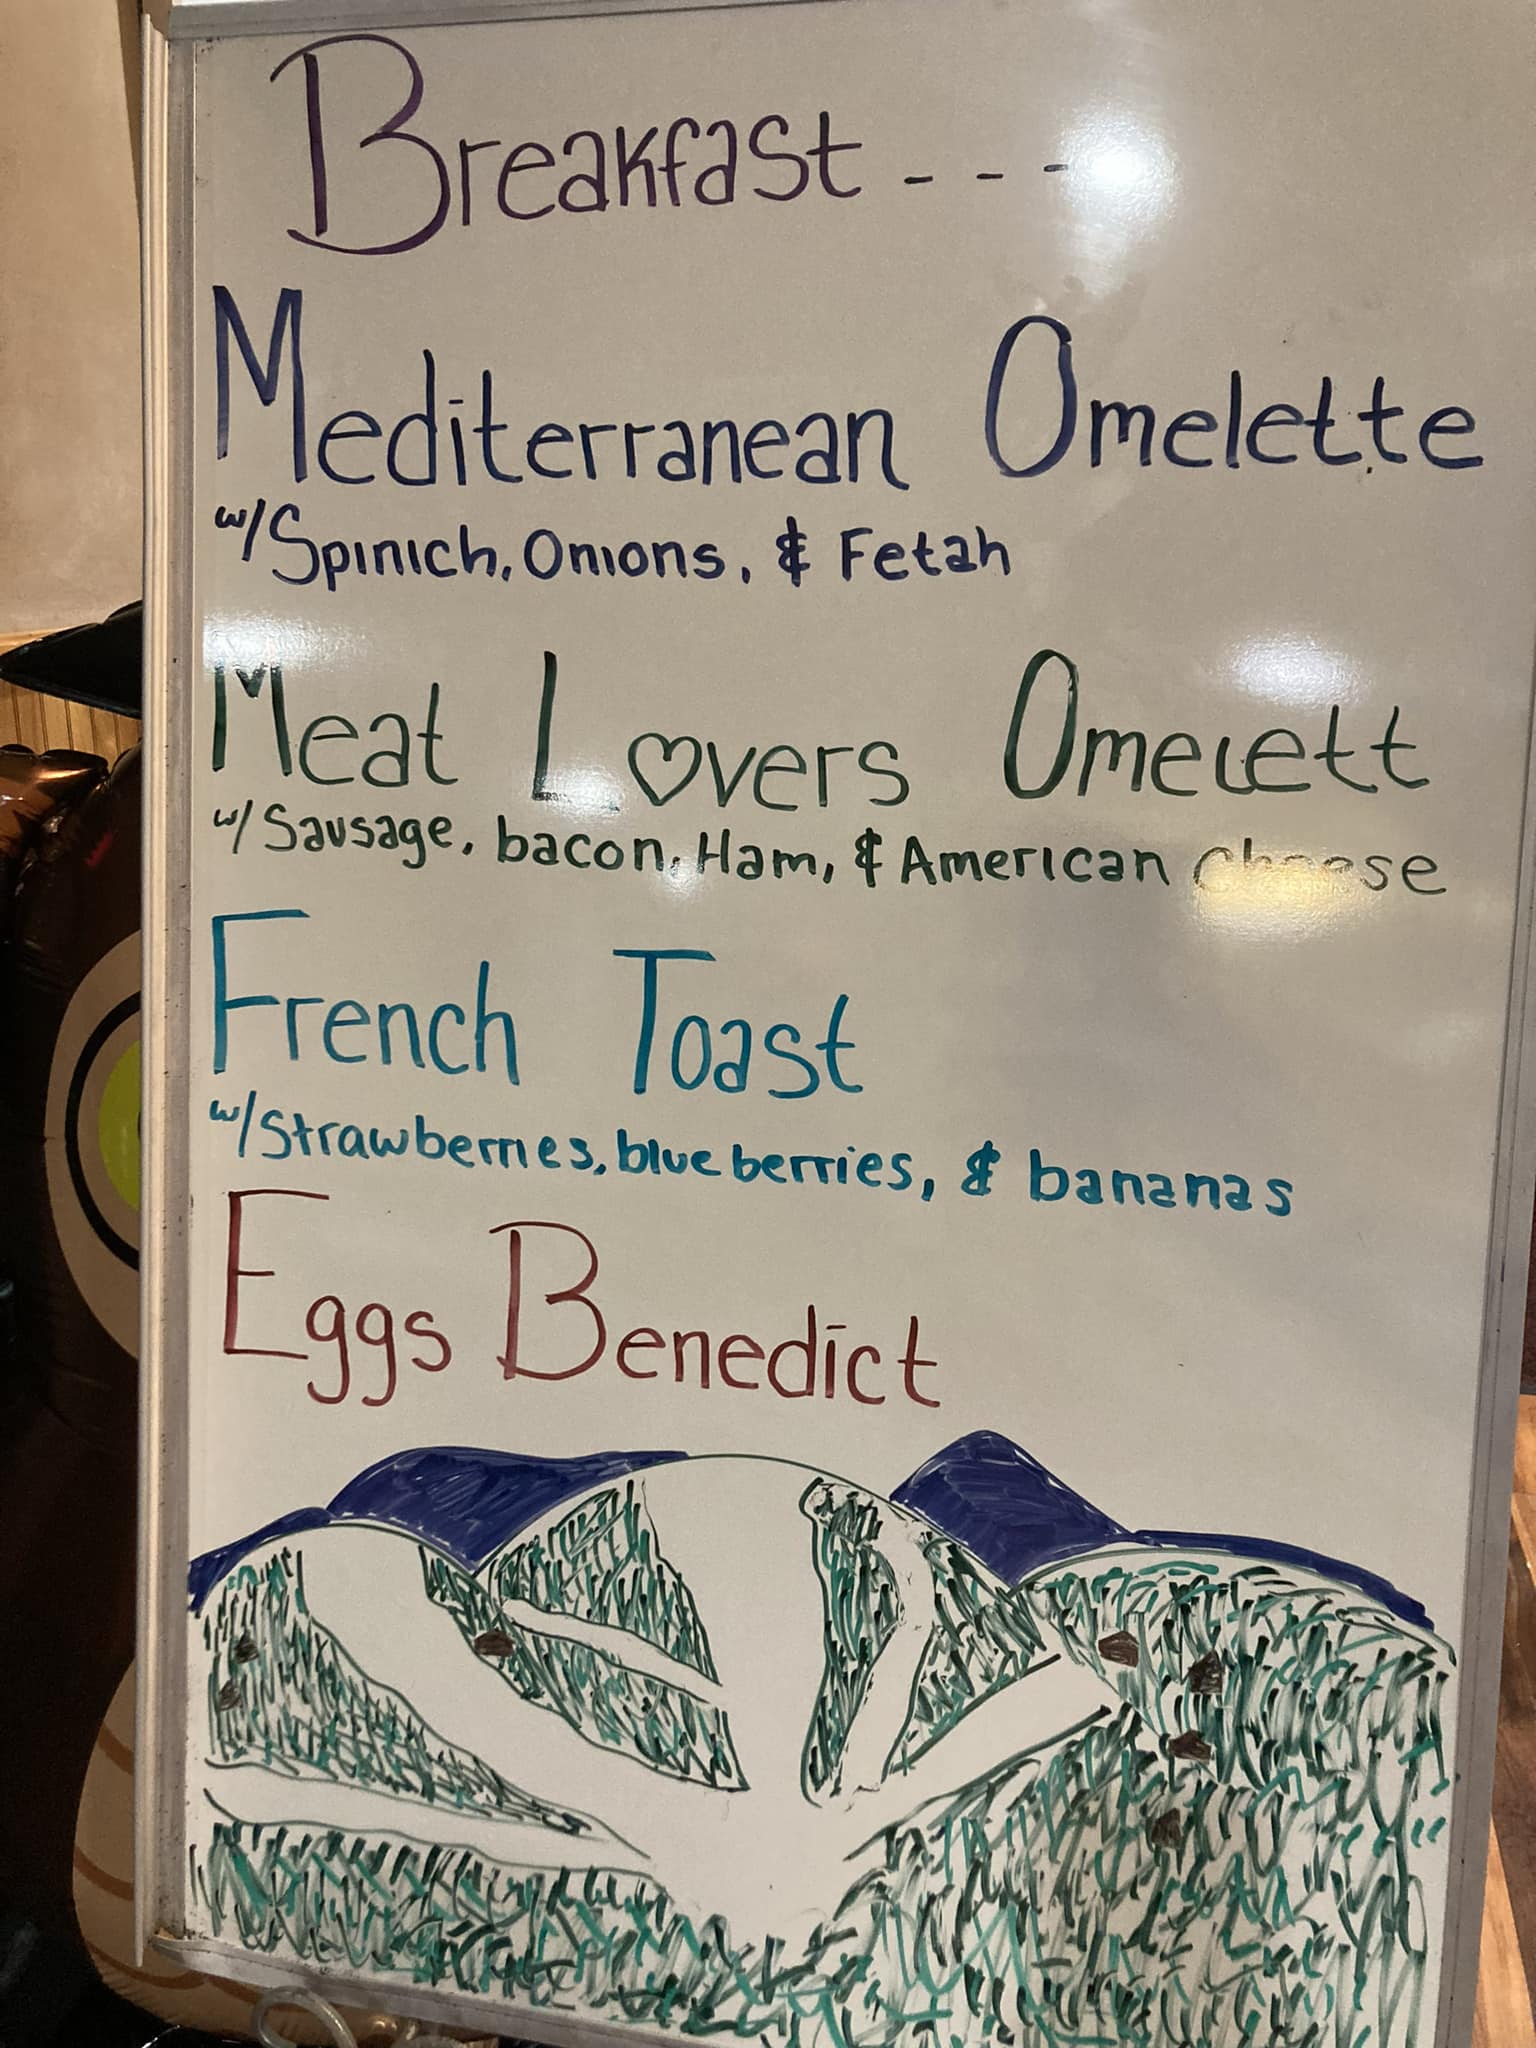 Breakfast - - -
Mediterranean Omelette
w/Spinich, Onions, & Fetah
Meat Lovers Omelett
w/Sausage, bacon, Ham, & American cheese
French Toast
w/Strawberries, blueberries, & bananas
Eggs Benedict